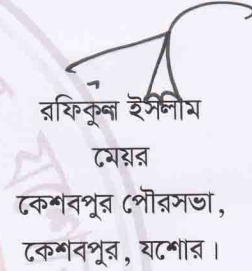 রফিকুল ইসলাম
মেয়র
কেশবপুর পৌরসভা,
কেশবপুর, যশোর।